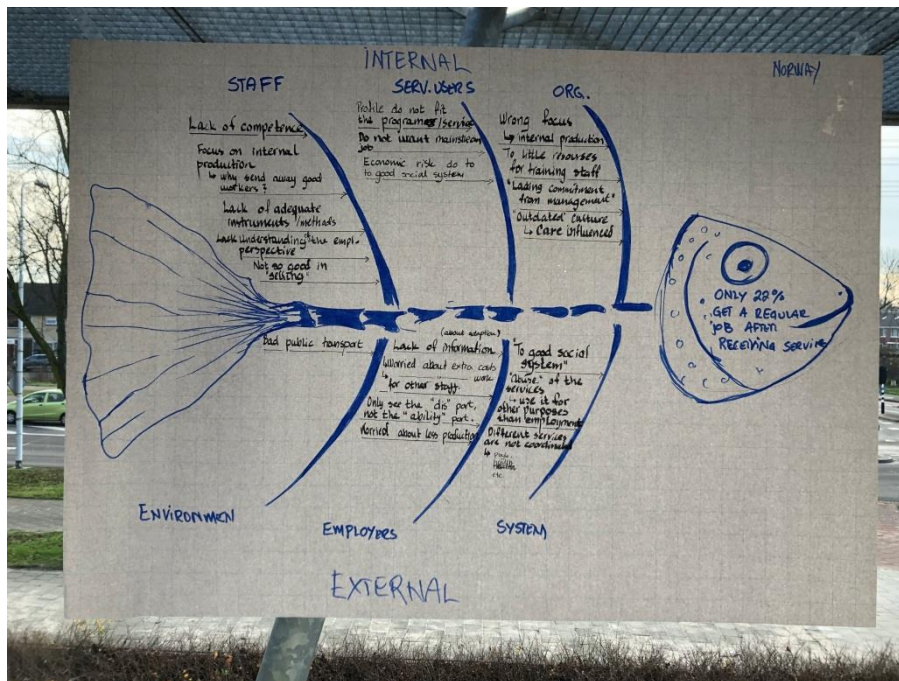 INTERNAL
NORWAY
STAFF
Lack of competence
Focus on internal
production
↳ why send away good
workers?
Lack of adequate
instruments/methods
Lack understanding the empl.
perspective
Not so good in
"selling"
SERV. USERS
Profile do not fit
the programs/service
Do not want mainstream
job
Economic risk do to
to good social system
ORG.
Wrong focus
↳ internal production
To little resourses
for training staff
"Lading commitment
from management"
"Outdated" culture
↳ Care influenced
ONLY 22%
GET A REGULAR
JOB AFTER
RECEIVING SERVICE
Bad public transport
ENVIRONMEN
(about adaption)
Lack of information
Worried about extra costs
↳ work
for other staff
Only see the "dis" part,
not the "ability" part.
Worried about less production
EMPLOYERS
"To good social
system"
"Abuse" of the
services
↳ use it for
other purposes
than employment
Different services
are not coordinated
↳
Health
etc.
SYSTEM
EXTERNAL